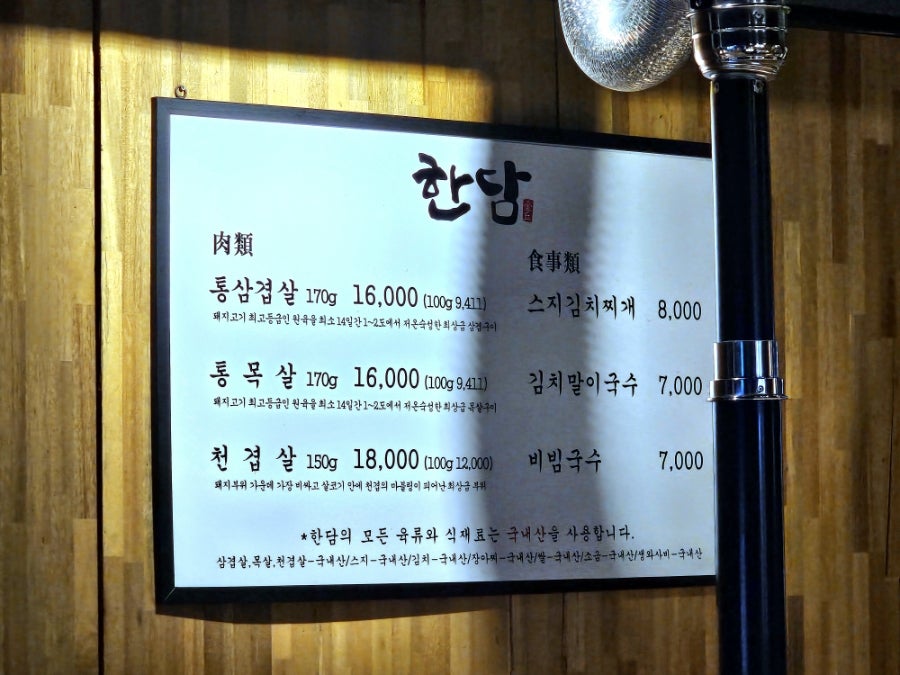 한담
肉類
통삼겹살 170g 16,000 (100g 9,411)
돼지고기 최고등급인 원육을 최소 14일간 1~2도에서 저온숙성한 최상급 삼겹구이
통 목 살 170g 16,000 (100g 9,411)
돼지고기 최고등급인 원육을 최소 14일간 1~2도에서 저온숙성한 최상급 목살구이
천 겹 살 150g 18,000 (100g 12,000)
돼지부위 가운데 가장 비싸고 살코기 안에 천겹의 마블링이 피어난 최상급 부위
食事類
스지김치찌개 8,000
김치말이국수 7,000
비빔국수 7,000
*한담의 모든 육류와 식재료는 국내산을 사용합니다.
삼겹살,목살,천겹살-국내산/스지-국내산/김치-국내산/장아찌-국내산/쌀-국내산/소금-국내산/생와사비-국내산